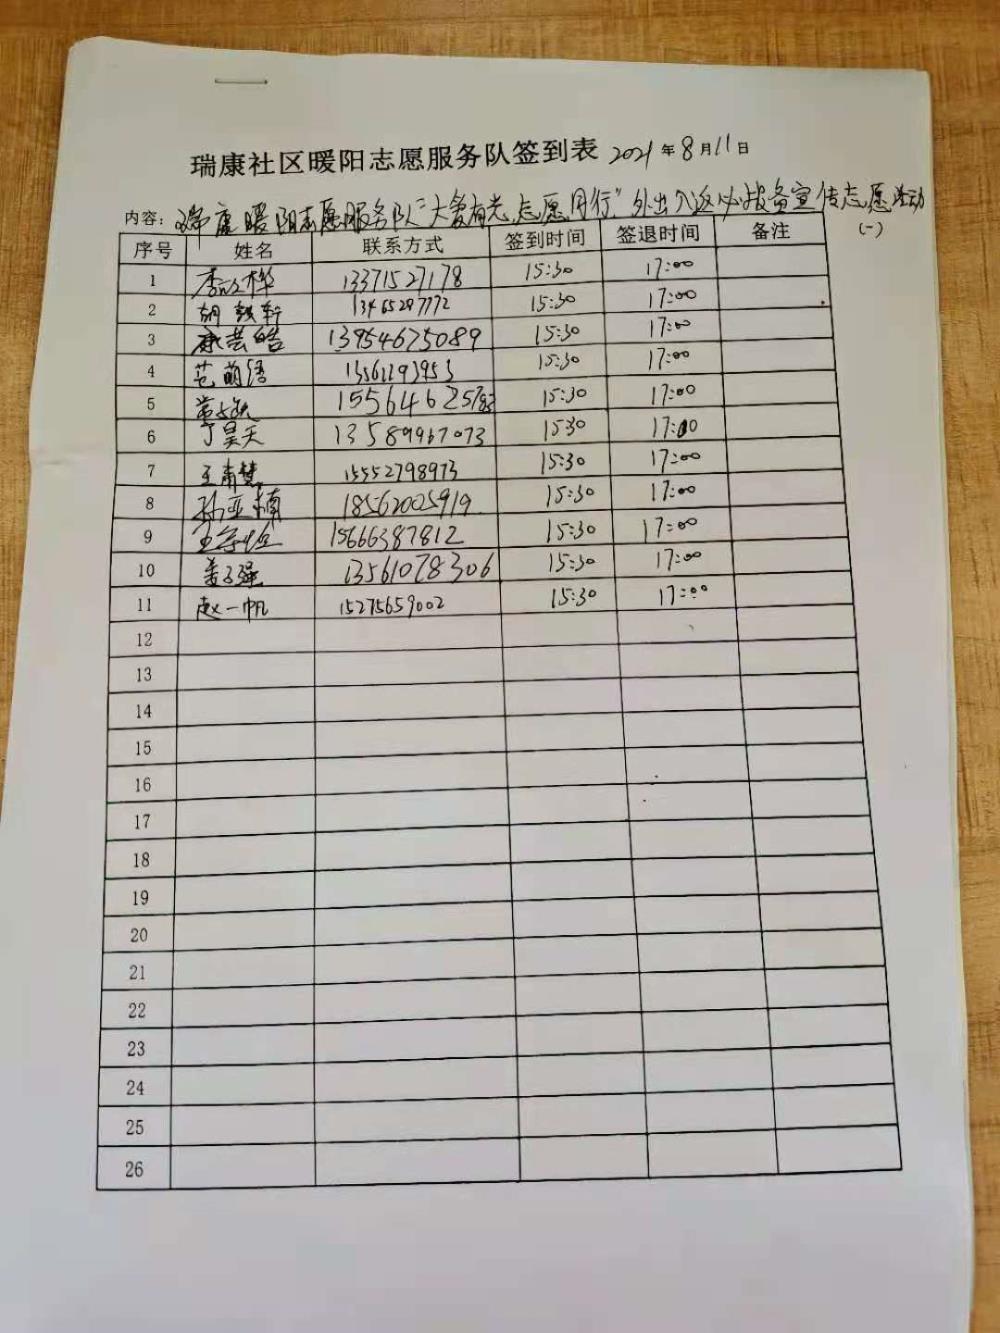 瑞康社区暖阳志愿服务队签到表 2021年8月11日
内容：瑞康暖阳志愿服务队"大爱有光，志愿同行"外出入返必报备宣传志愿活动
(一)
序号 姓名 联系方式 签到时间 签退时间 备注
1 13371527178 15:30 17:00
2 15:30 17:00
3 康芸皓 13954675089 15:30 17:00
4 范萌语 15:30 17:00
5 15:30 17:00
6 丁昊天 13589967073 15:30 17:00
7 15552798973 15:30 17:00
8 孙亚楠 18562005919 15:30 17:00
9 15666387812 15:30 17:00
10 姜子强 13561078306 15:30 17:00
11 赵一帆 15275659002 15:30 17:00
12
13
14
15
16
17
18
19
20
21
22
23
24
25
26